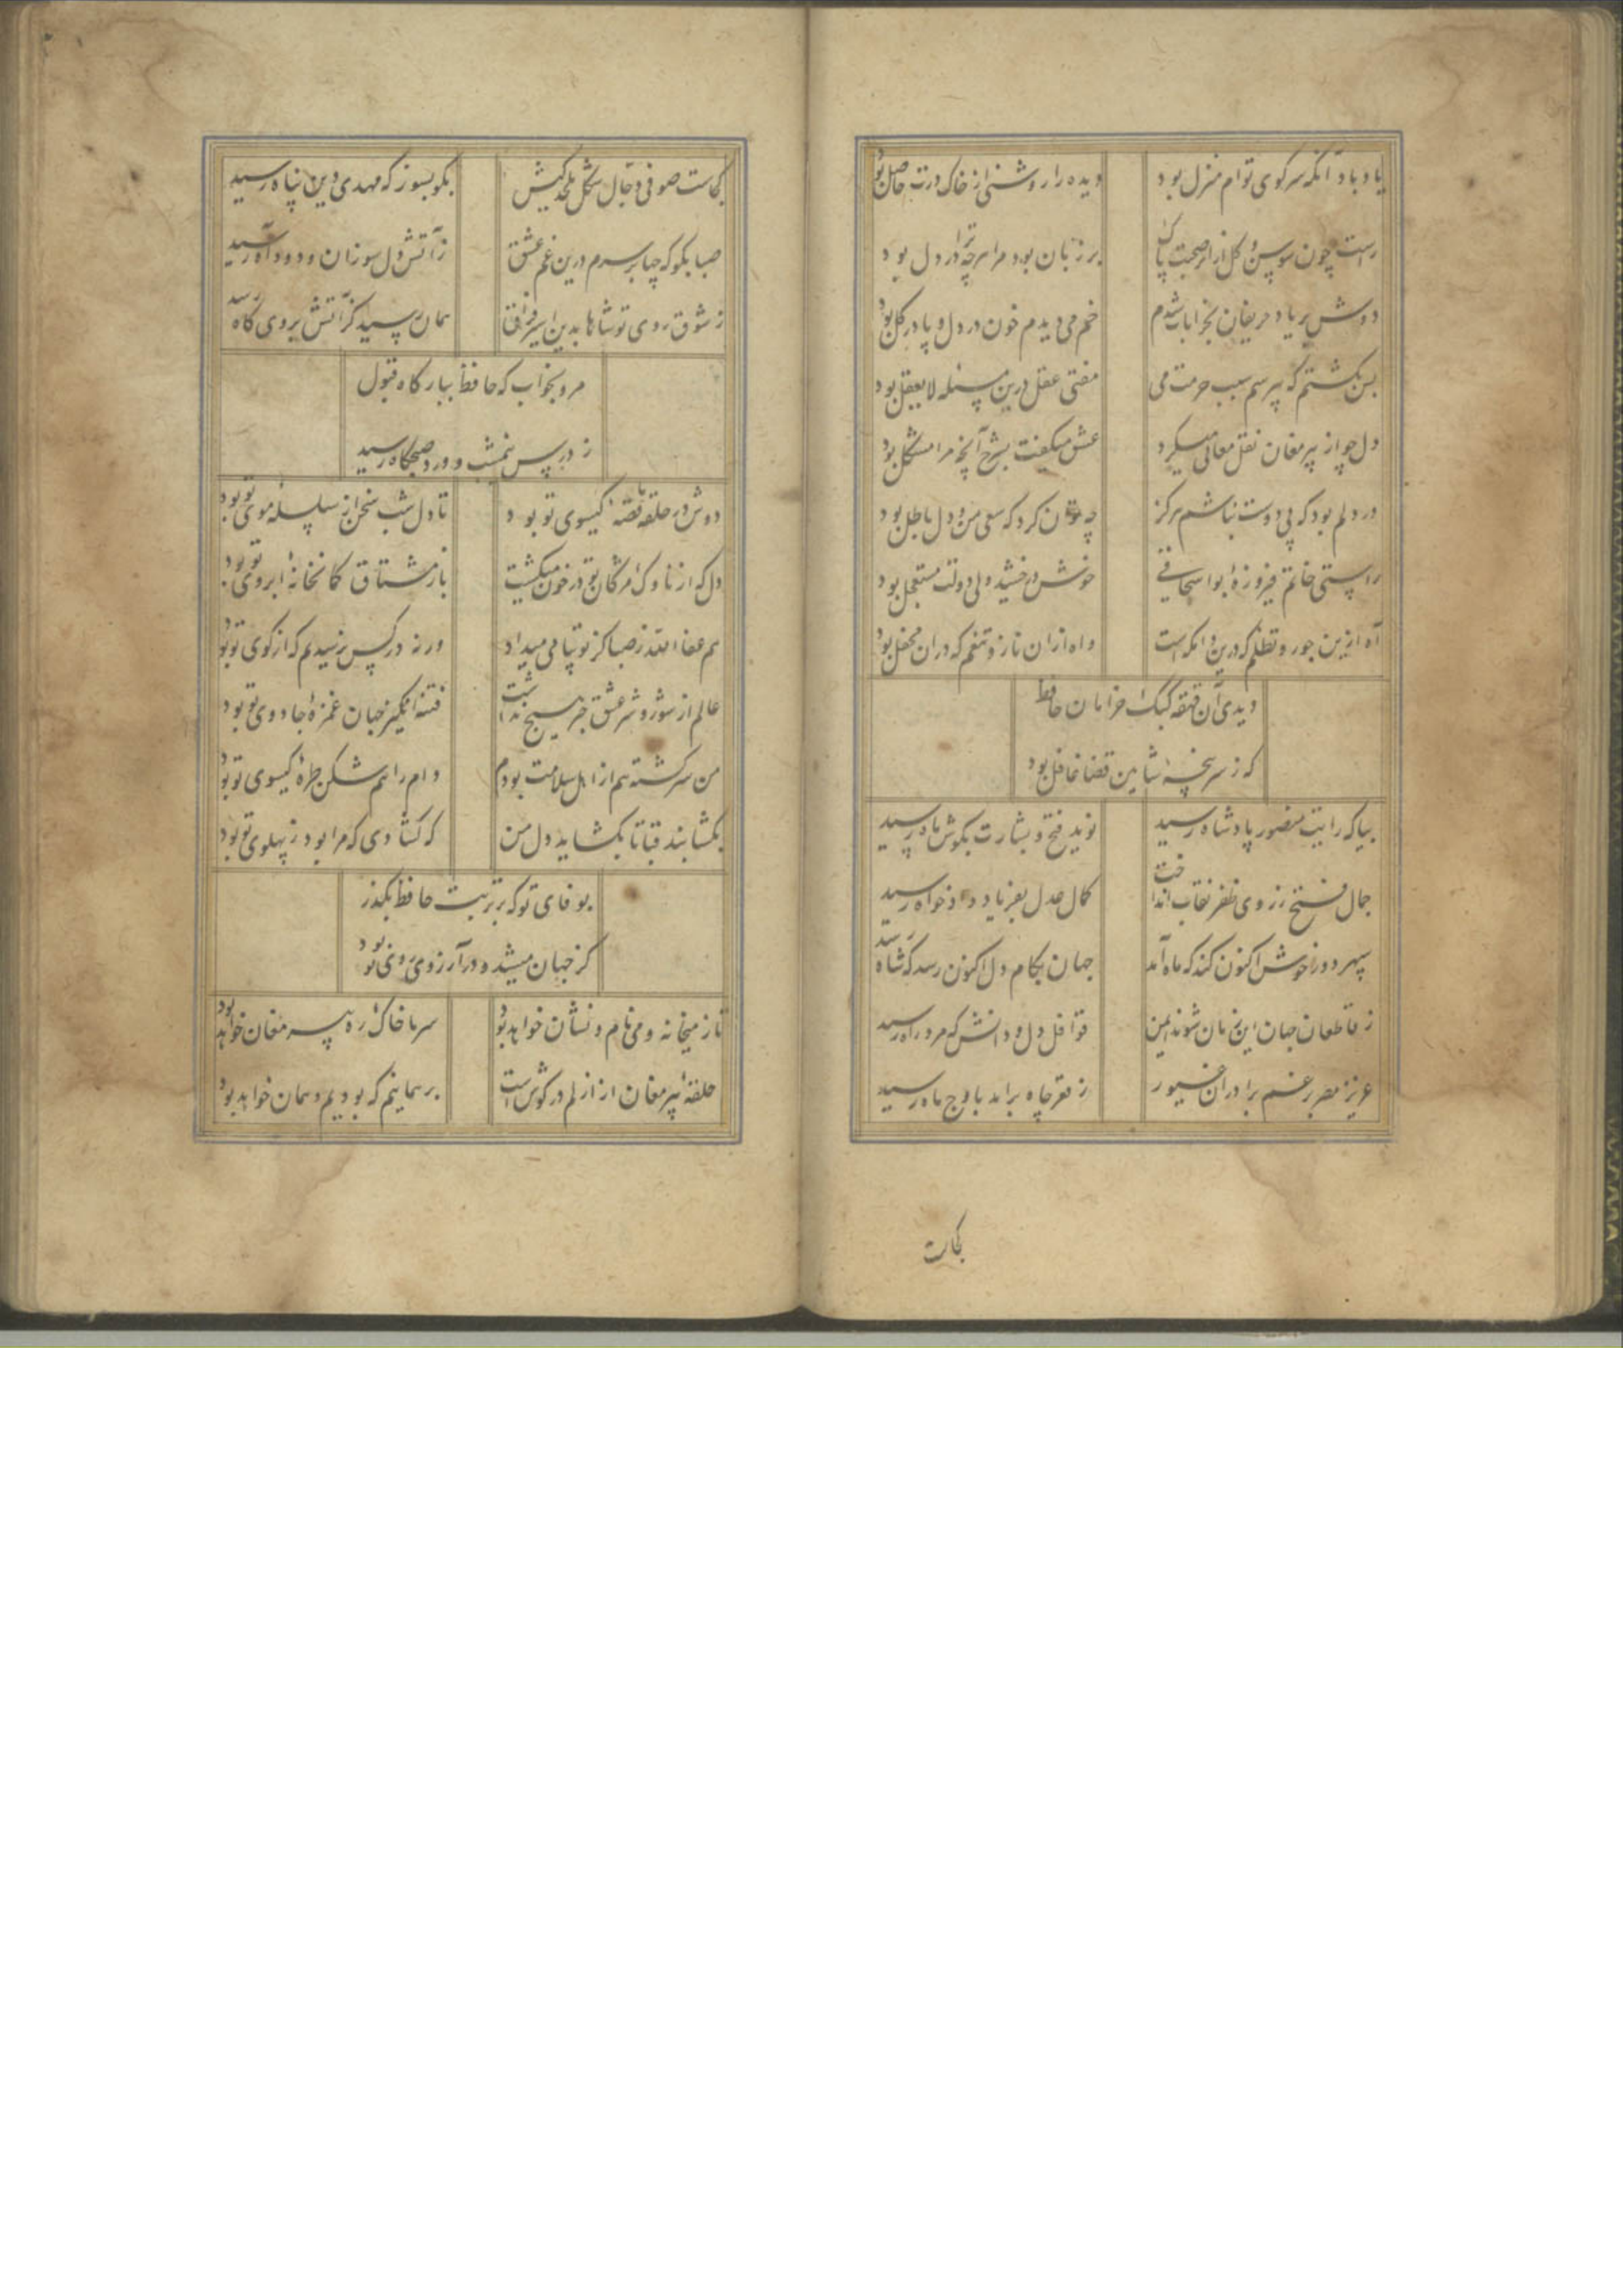 یاد باد آنکه سر کوی توام منزل بود
دیده را روشنی از خاک درت حاصل بود
راست چون سوسن و گل از اثر صحبت پاک
بر زبان بود مرا هرچه ترا در دل بود
دوش بر یاد حریفان بخرابات شدم
خم می دیدم خون در دل و پا در گل بود
بس بگشتم که بپرسم سبب حرمت می
مفتی عقل درین مسئله لایعقل بود
دل چو از پیر مغان نقل معانی میکرد
عشق میگفت بشرح آنچه مرا مشکل بود
در دلم بود که بی دوست نباشم هرگز
چه توان کرد که سعی من و دل باطل بود
راستی خاتم فیروزهٔ بواسحاقی
خوش درخشید ولی دولت مستعجل بود
آه ازین جور و تظلم که درین دامگه است
واه ازان ناز و تنعم که دران محفل بود
دیدی آن قهقهه کبک خرامان حافظ
که ز سرپنجهٔ شاهین قضا غافل بود
بیا که رایت منصور پادشاه رسید
نوید فتح و بشارت بگوش ماه رسید
جمال فتح ز روی ظفر نقاب انداخت
کمال عدل بفریاد دادخواه رسید
سپهر دور خوش اکنون کند که ماه آمد
جهان بکام دل اکنون رسد که شاه رسید
ز قاطعان جهان این زمان شوند ایمن
قوافل دل و دانش که مرد راه رسید
عزیز مصر برغم برادران غیور
ز قعر چاه برامد باوج ماه رسید
کجاست
کجاست صوفی دجال شکل ملحد کیش
بگو بسوز که مهدی دین پناه رسید
صبا بگو که چها بر سرم درین غم عشق
ز آتش دل سوزان و دود آه رسید
ز شوق روی تو شاها بدین اسیر فراق
همان رسید کز آتش بروی کاه رسید
مرو بخواب که حافظ ببارگاه قبول
ز درس نیمشب و ورد صبحگاه رسید
دوش در حلقه ما قصه گیسوی تو بود
تا دل شب سخن از سلسلهٔ موی تو بود
دل که از ناوک مژگان تو در خون میگشت
باز مشتاق کمانخانهٔ ابروی تو بود
هم عفا الله ز صبا کز تو پیامی میداد
ورنه در کس نرسیدیم که از کوی تو بود
عالم از شور و شر عشق خبر هیچ نداشت
فتنه انگیز جهان غمزهٔ جادوی تو بود
من سرگشته هم از اهل سلامت بودم
دام راهم شکن طرهٔ گیسوی تو بود
بگشا بند قبا تا بگشاید دل من
که گشادی که مرا بود ز پهلوی تو بود
بوفای تو که بر تربت حافظ بگذر
کز جهان میشد و در آرزوی روی تو بود
تا ز میخانه و می نام و نشان خواهد بود
سر ما خاک ره پیر مغان خواهد بود
حلقهٔ پیر مغان از ازلم در گوش است
بر همانیم که بودیم و همان خواهد بود